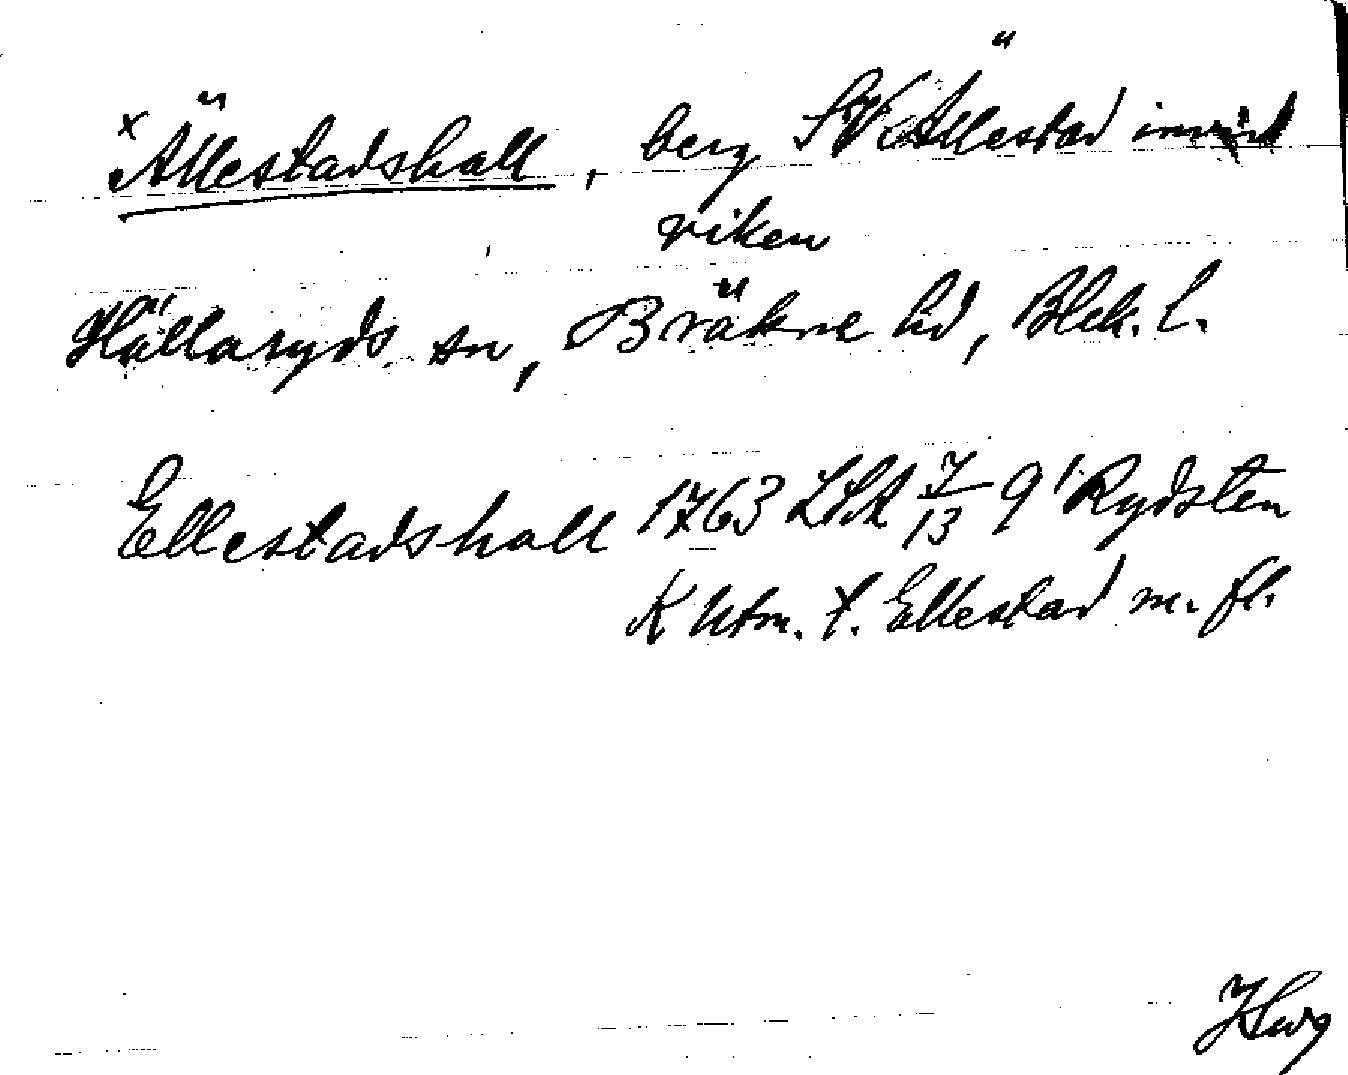 x Ällestadshall, berg SV Ällestad invid
viken
Hällaryds sn, Bräkne hd, Blek. l.
Ellestadshall 1763 LSA 7/13 9' Rydsten
K Utm. t. Ellestad m. fl.